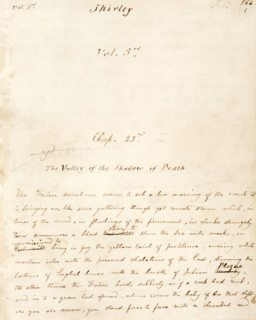 Vol. 3rd
Shirley
Vol. 3rd
Chap. 23rd
The Valley of the Shadow of Death
The Future sometimes seems to sob a low warning of the events it
is bringing us, like some gathering though yet remote storm, which, in
tones of the wind, in flushings of the firmament, in clouds strangely
torn announces a blast strong to strew the sea with wrecks, or
commissioned to bring in fog the yellow taint of pestilence, covering white
western isles with the poisoned exhalations of the East, dimming the
lattices of English homes with the breath of Indian Plague
At other times this Future bursts suddenly as if a rock had rent,
and in it a grave had opened, whence issues the body of one that slept.
ere you are aware, you stand face to face with a shrouded and